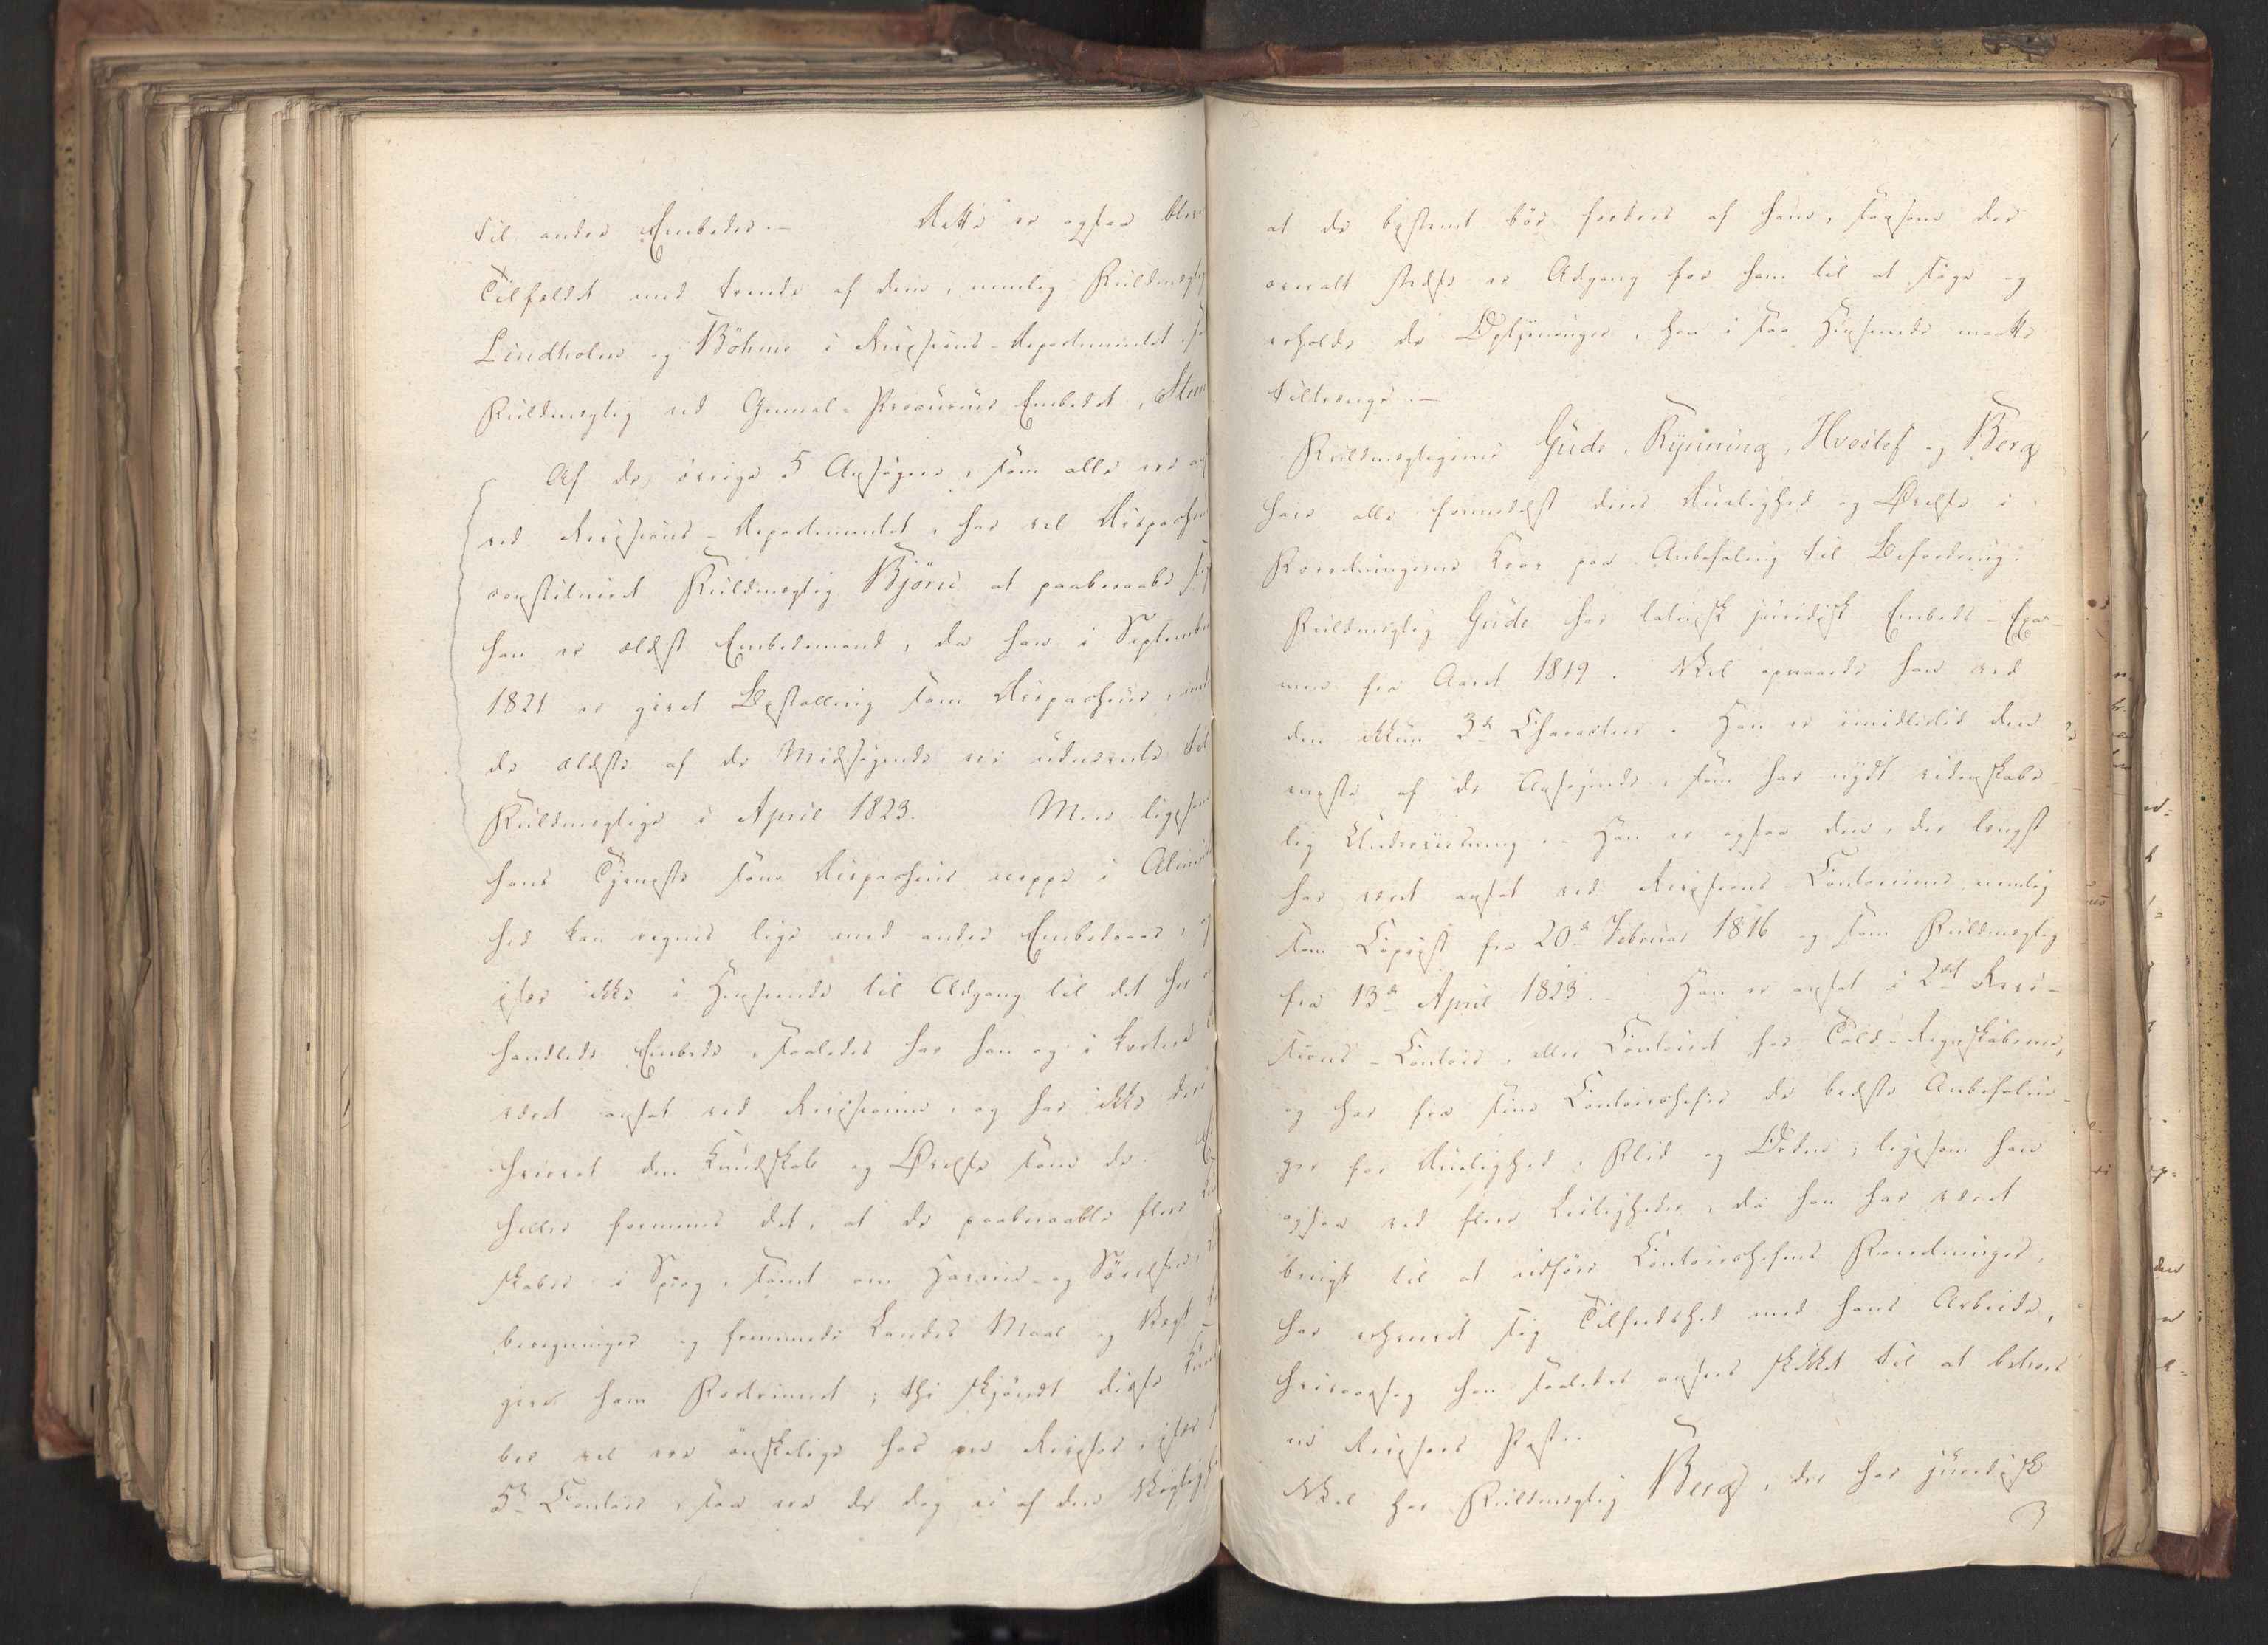 til andre Embeder. — Dette er ogsaa blev
Tilfældet med trende af dem, nemlig Fuldmægtig
Lindholm og Böhme i Revisions-Departementet, sa
Fuldmægtig ved General-Procureur Embedet, Steen
Af de övrige 5 Ansögere, som alle ere an
ved Revisions-Departementet, har vel Dispacheur
constitueret Fuldmægtig Björn at paaberaabe sig
han er ældst Embedsmand, da han i September
1821 er givet Bestalling som Dispacheur, imed
de ældste af de Medsögende ere udnævnte til
Fuldmægtige i April 1823. Men ligesom
hans Tjeneste som Dispacheur neppe i Almind
hed kan regnes lige med andre Embedsaar, og
især ikke i Henseende til Adgang til det her
handlede Embede, saaledes har han og i kortere
været ansat ved Revisionen, og har ikke der
hvervet den Kundskab og Övelse som de
heller formenes det, at de paaberaabte flere
skaber i Sprog, samt om Havarie- og Söretten,
beregninger og fremmede Landes Maal og Vægt
giver ham Fortrinnet; thi skjöndt disse Kund
ber vel ere önskelige hos en Revisor, især
5te Contoir, saa ere de dog ei af den Vigtighed
at de bestemt bör fordres af ham, saasom der
overalt stedse er Adgang for ham til at söge og
erholde de Oplysninger, han i saa Henseende maatte
tiltrenge. —
Fuldmægtigerne Gude, Rynning, Hvoslef og Berg
have alle formedelst deres Duelighed og Övelse i
Forretningerne Krav paa Anbefaling til Befordring.
Fuldmægtig Gude har latinsk juridisk Embeds-Exa-
men fra Aaret 1819. Vel opnaaede han ved
den ikkun 3die Character. Han er imidlertid den
eneste af de Ansögende, som har nydt videnskabe-
lig Underviisning. – Han er ogsaa den, der længst
har været ansat ved Revisions-Contorerne, nemlig
som Copiist fra 20de Februar 1816 og som Fuldmægtig
fra 13de April 1823. – Han er ansat i 2det Revi-
sions-Contoir, eller Contoiret for Told-Regnskaberne,
og har fra sine Contoirchefer de bedste Anbefalin-
ger for Duelighed, Flid og Orden; ligesom han
ogsaa ved flere Leiligheder, da han har været
brugt til at udföre Contoirchefens Forretninger,
har erhvervet sig Tilfredshed med hans Arbeide,
hvisaarsag han saaledes ansees skikket til at betroes
en Revisors Post. –
Vel har Fuldmægtig Berg, der har juridisk